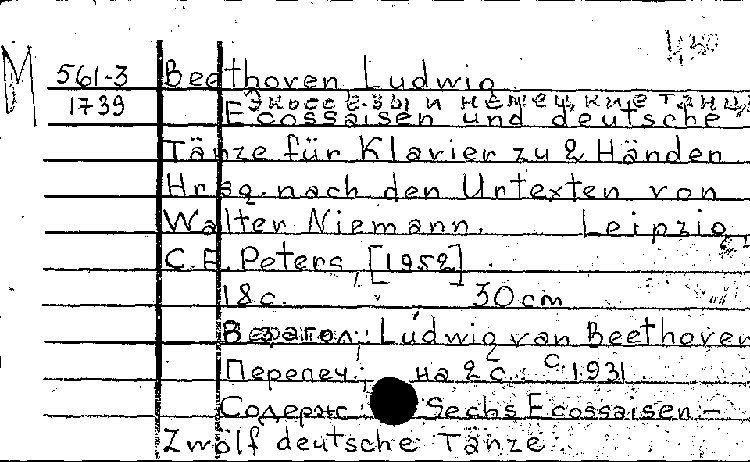 430
М 561-3 Beethoven Ludwig
1739 Экосезы и немецкие танцы
Ecossaisen und deutsche
Tänze für Klavier zu 2 Händen
Hrsg. nach den Urtexten von
Walter Niemann. Leipzig,
C. F. Peters, [1952].
18 с. 30 cm
В загол.: Ludwig van Beethoven
Перепеч.: на 2 с.: с 1931
Содерж: Sechs Ecossaisen.—
Zwölf deutsche Tänze.